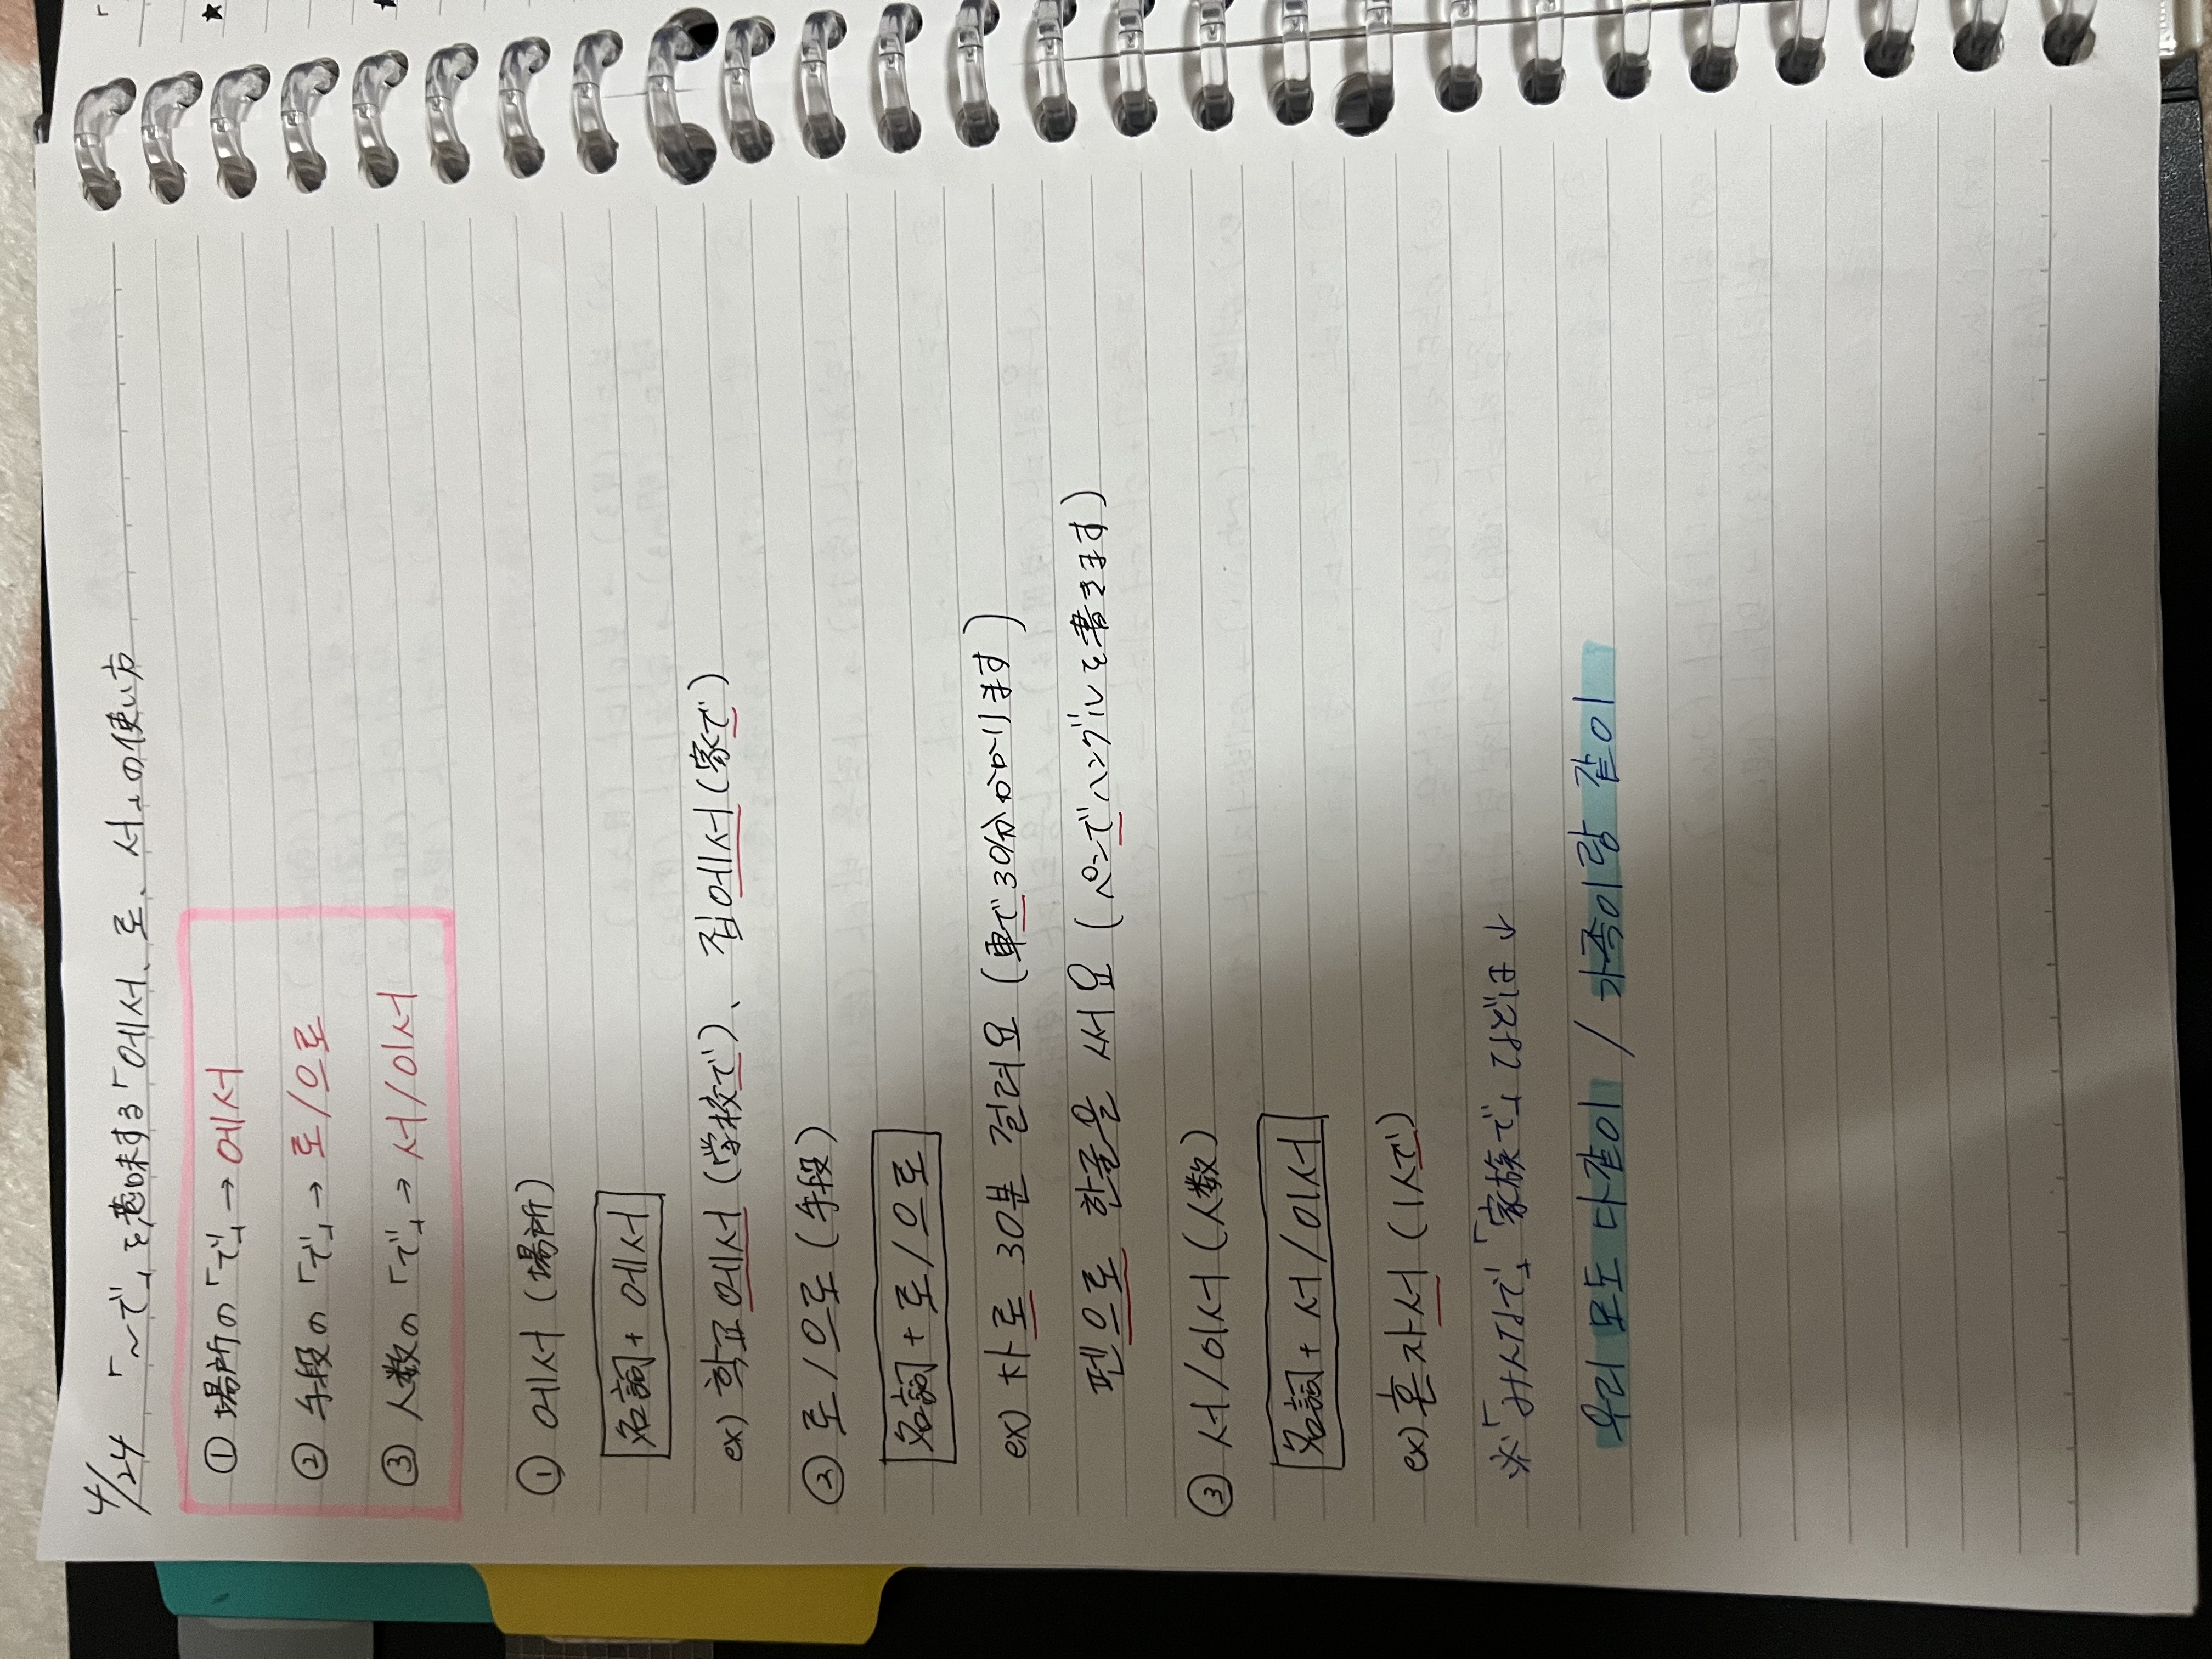 4/24 「〜で」を意味する「에서、로、서」の使い方
① 場所の「で」→ 에서
② 手段の「で」→ 로/으로
③ 人数の「で」→ 서/이서
① 에서 (場所)
名詞 + 에서
ex) 학교에서 (学校で)、 집에서 (家で)
② 로/으로 (手段)
名詞 + 로/으로
ex) 차로 30분 걸려요 (車で30分かかります)
펜으로 한글을 써요 (ペンでハングルを書きます)
③ 서/이서 (人数)
名詞 + 서/이서
ex) 혼자서 (1人で)
※「みんなで」「家族で」などは↓
우리 모도 다같이 / 가족이랑 같이